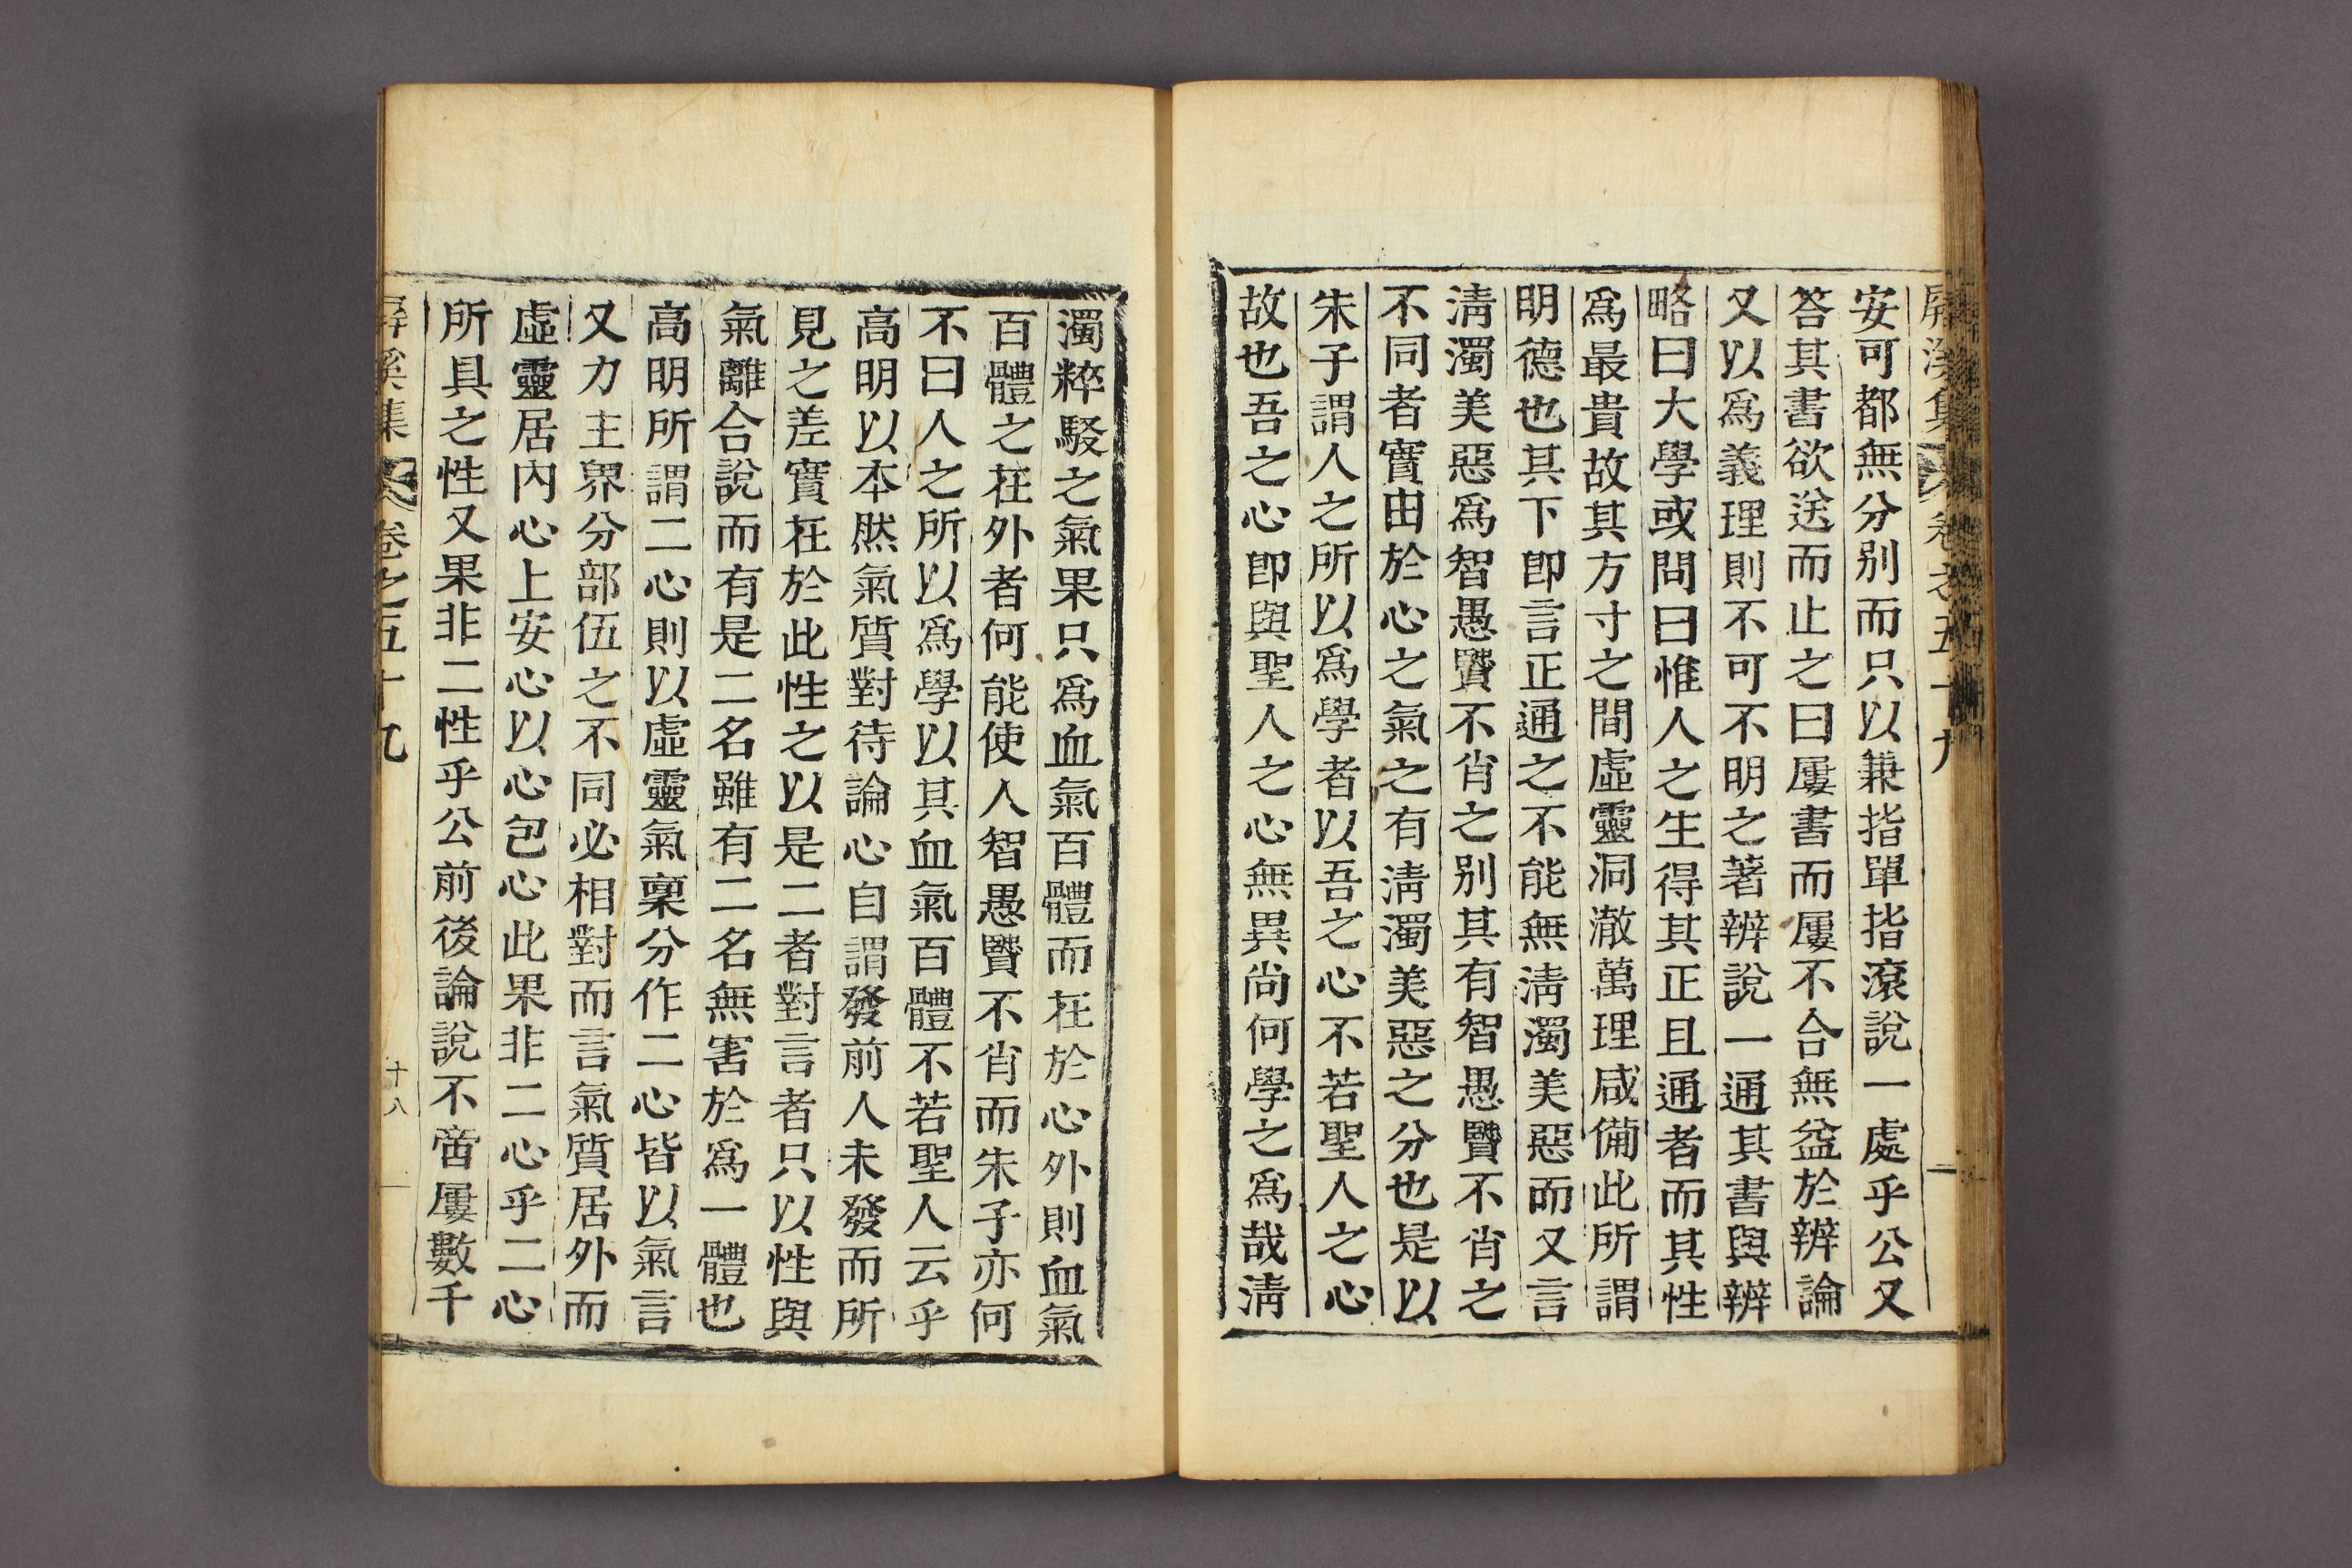 屛溪集 卷之五十九
安可都無分別而只以兼指單指滾說一處乎公又
答其書欲送而止之曰屢書而屢不合無益於辨論
又以爲義理則不可不明之著辨說一通其書與辨
略曰大學或問曰惟人之生得其正且通者而其性
爲最貴故其方寸之間虛靈洞澈萬理咸備此所謂
明德也其下卽言正通之不能無淸濁美惡而又言
淸濁美惡爲智愚賢不肖之別其有智愚賢不肖之
不同者實由於心之氣之有淸濁美惡之分也是以
朱子謂人之所以爲學者以吾之心不若聖人之心
故也吾之心卽與聖人之心無異尙何學之爲哉淸
濁粹駁之氣果只爲血氣百體而在於心外則血氣
百體之在外者何能使人智愚賢不肖而朱子亦何
不曰人之所以爲學以其血氣百體不若聖人云乎
高明以本然氣質對待論心自謂發前人未發而所
見之差實在於此性之以是二者對言者只以性與
氣離合說而有是二名雖有二名無害於爲一體也
高明所謂二心則以虛靈氣稟分作二心皆以氣言
又力主界分部伍之不同必相對而言氣質居外而
虛靈居內心上安心以心包心此果非二心乎二心
所具之性又果非二性乎公前後論說不啻屢數千
屛溪集 卷之五十九 十八